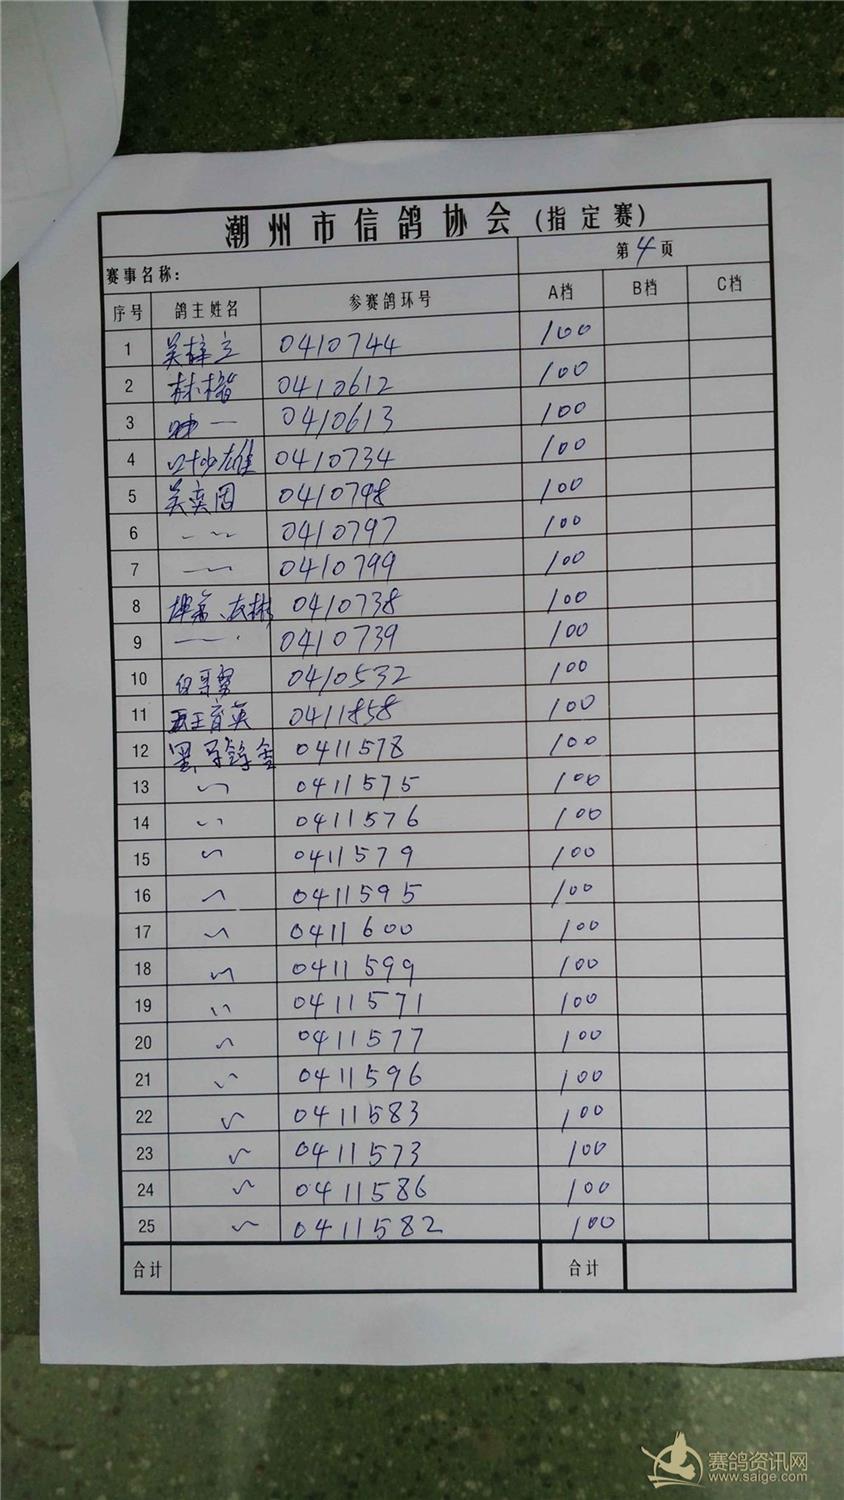 潮州市信鸽协会(指定赛)
赛事名称: 第4页
序号 鸽主姓名 参赛鸽环号 A档 B档 C档
1 吴梓立 0410744 100
2 0410612 100
3 0410613 100
4 0410734 100
5 吴奕因 0410798 100
6 0410797 100
7 0410799 100
8 0410738 100
9 0410739 100
10 0410532 100
11 王育英 0411858 100
12 0411578 100
13 0411575 100
14 0411576 100
15 0411579 100
16 0411595 100
17 0411600 100
18 0411599 100
19 0411571 100
20 0411577 100
21 0411596 100
22 0411583 100
23 0411573 100
24 0411586 100
25 0411582 100
合计 合计
赛鸽资讯网
www.saige.com